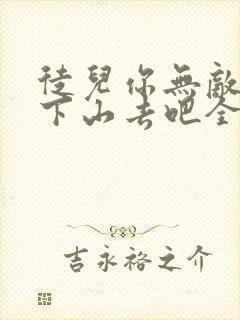 徒兒你無敵
下山去吧全
吉永裕之介